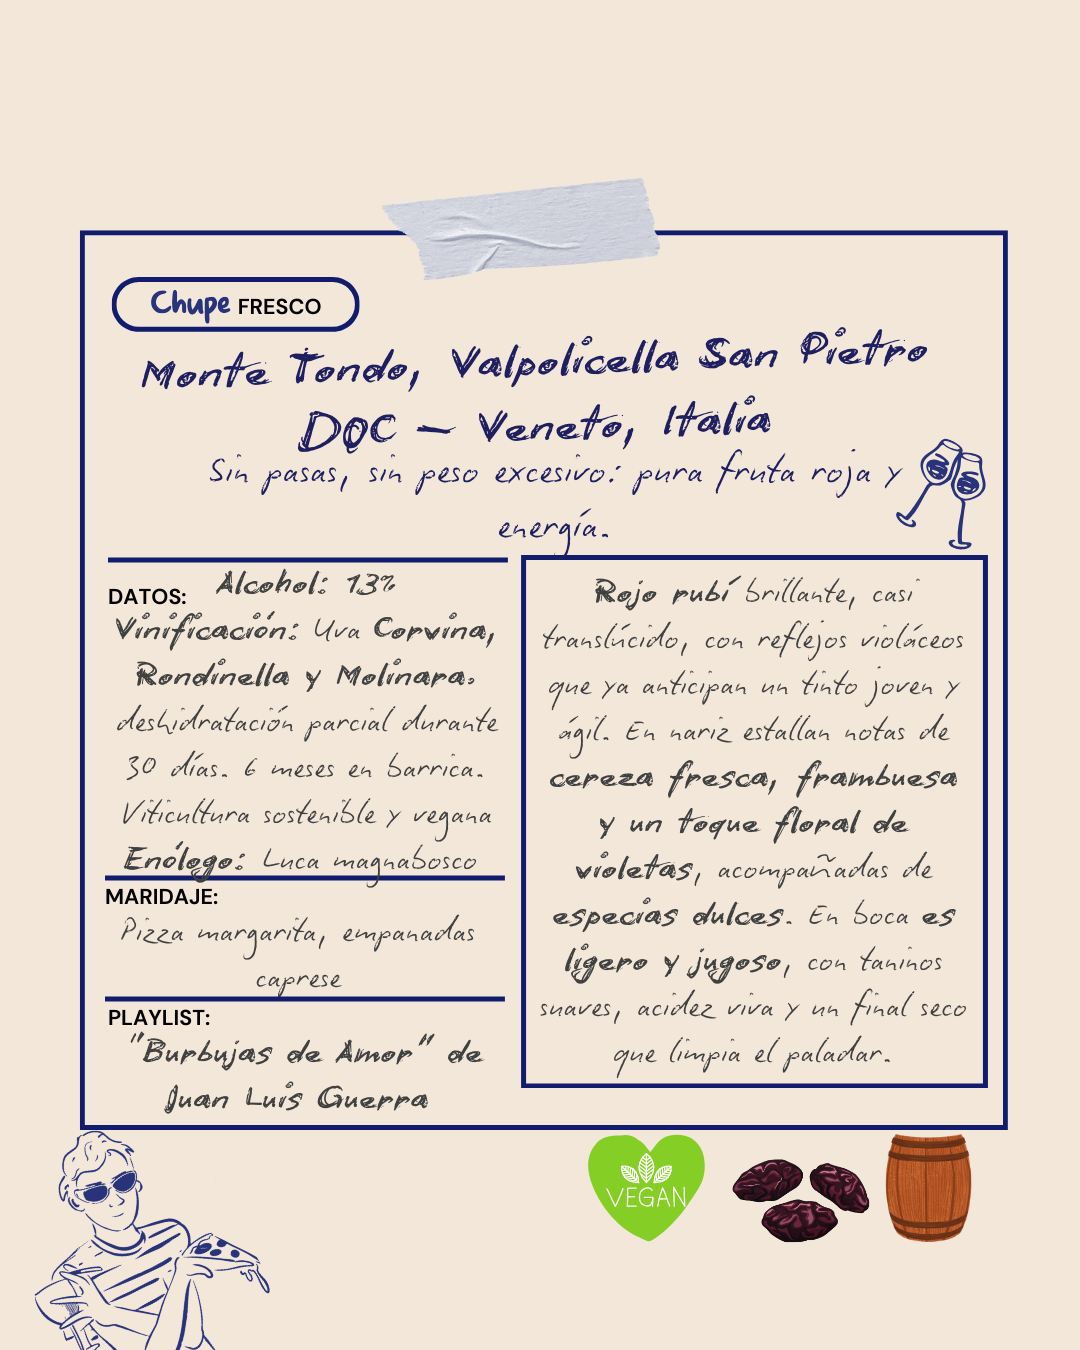 Chupe FRESCO
Monte Tondo, Valpolicella San Pietro
DOC – Veneto, Italia
Sin pasas, sin peso excesivo: pura fruta roja y
energía.
DATOS: Alcohol: 13%
Vinificación: Uva Corvina,
Rondinella y Molinara.
deshidratación parcial durante
30 días. 6 meses en barrica.
Viticultura sostenible y vegana
Enólogo: Luca magnabosco
MARIDAJE:
Pizza margarita, empanadas
caprese
PLAYLIST:
"Burbujas de Amor" de
Juan Luis Guerra
Rojo rubí brillante, casi
translúcido, con reflejos violáceos
que ya anticipan un tinto joven y
ágil. En nariz estallan notas de
cereza fresca, frambuesa
y un toque floral de
violetas, acompañadas de
especias dulces. En boca es
ligero y jugoso, con taninos
suaves, acidez viva y un final seco
que limpia el paladar.
VEGAN